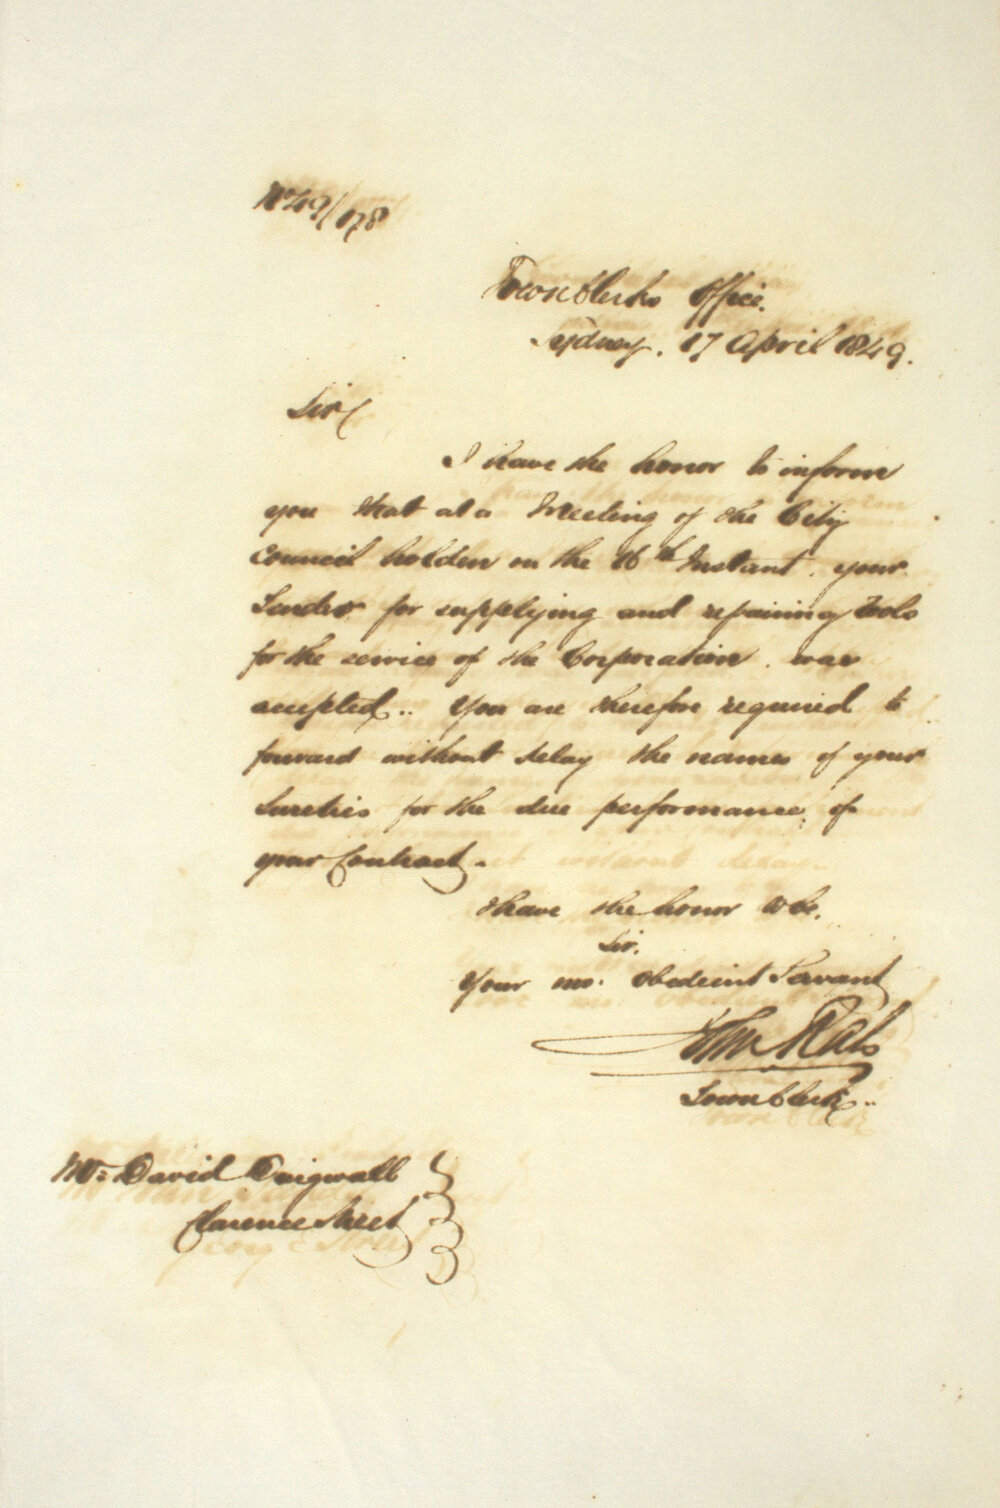 No 49/178
Town Clerks Office.
Sydney. 17 April 1849.
Sir
I have the honor to inform
you that at a Meeting of the City
Council holden on the 16th Instant. your
Tender for supplying and repairing Tools
for the service of the Corporation. was
accepted.. You are therefore required to
forward without delay the names of your
Sureties for the due performance of
your Contract.
I have the honor to be.
Sir.
Your mo. Obedient Servant
John Rae
Town Clerk..
Mr David Dingwall
Clarence Street